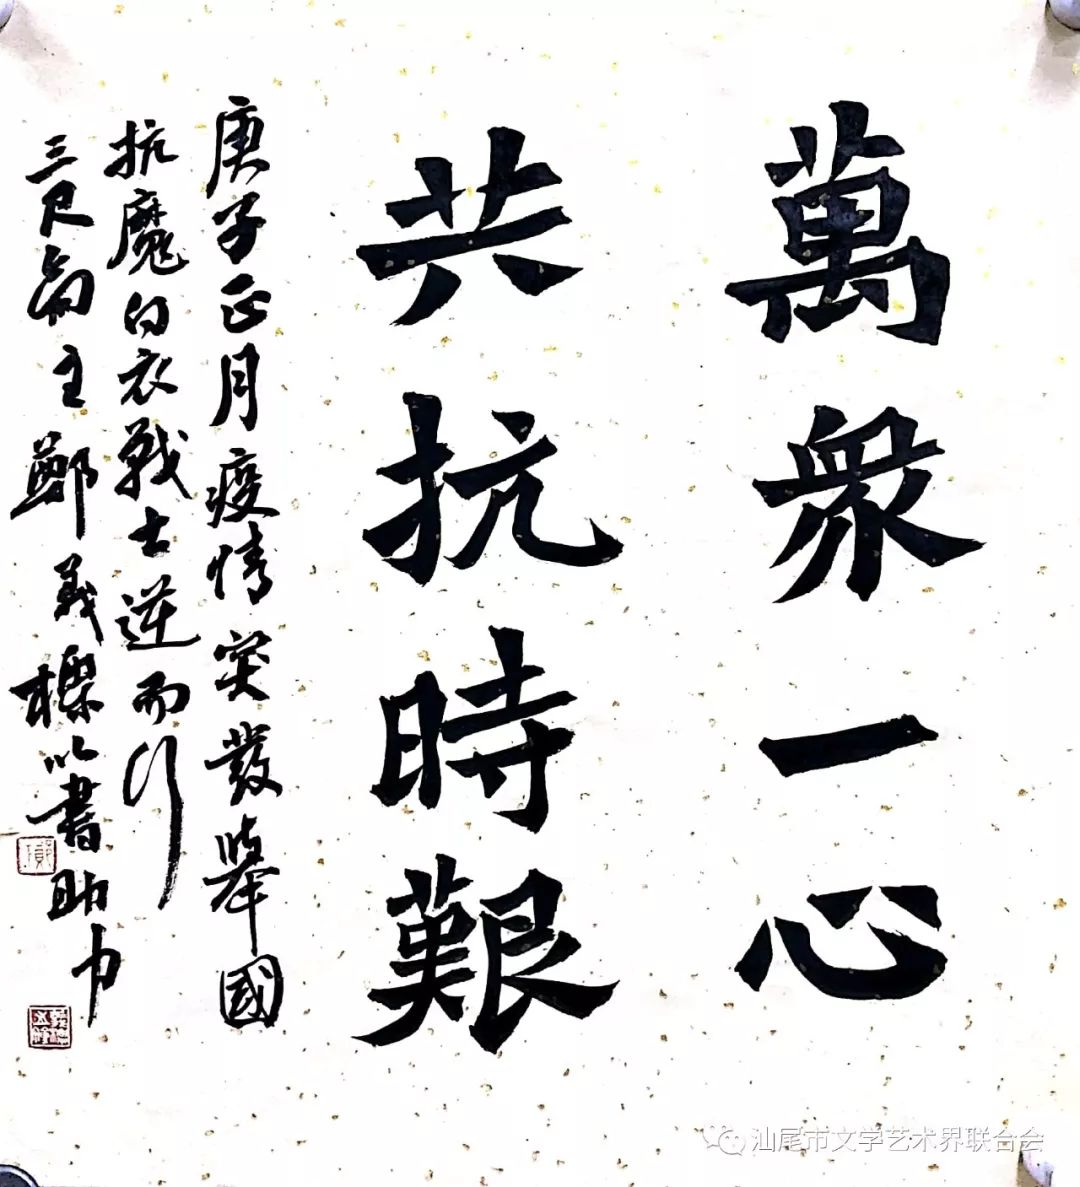 萬衆一心
共抗時艱
庚子正月疫情突發舉國
抗魔白衣戰士逆而行
三尺斋主鄭義標以書助力
汕尾市文学艺术界联合会